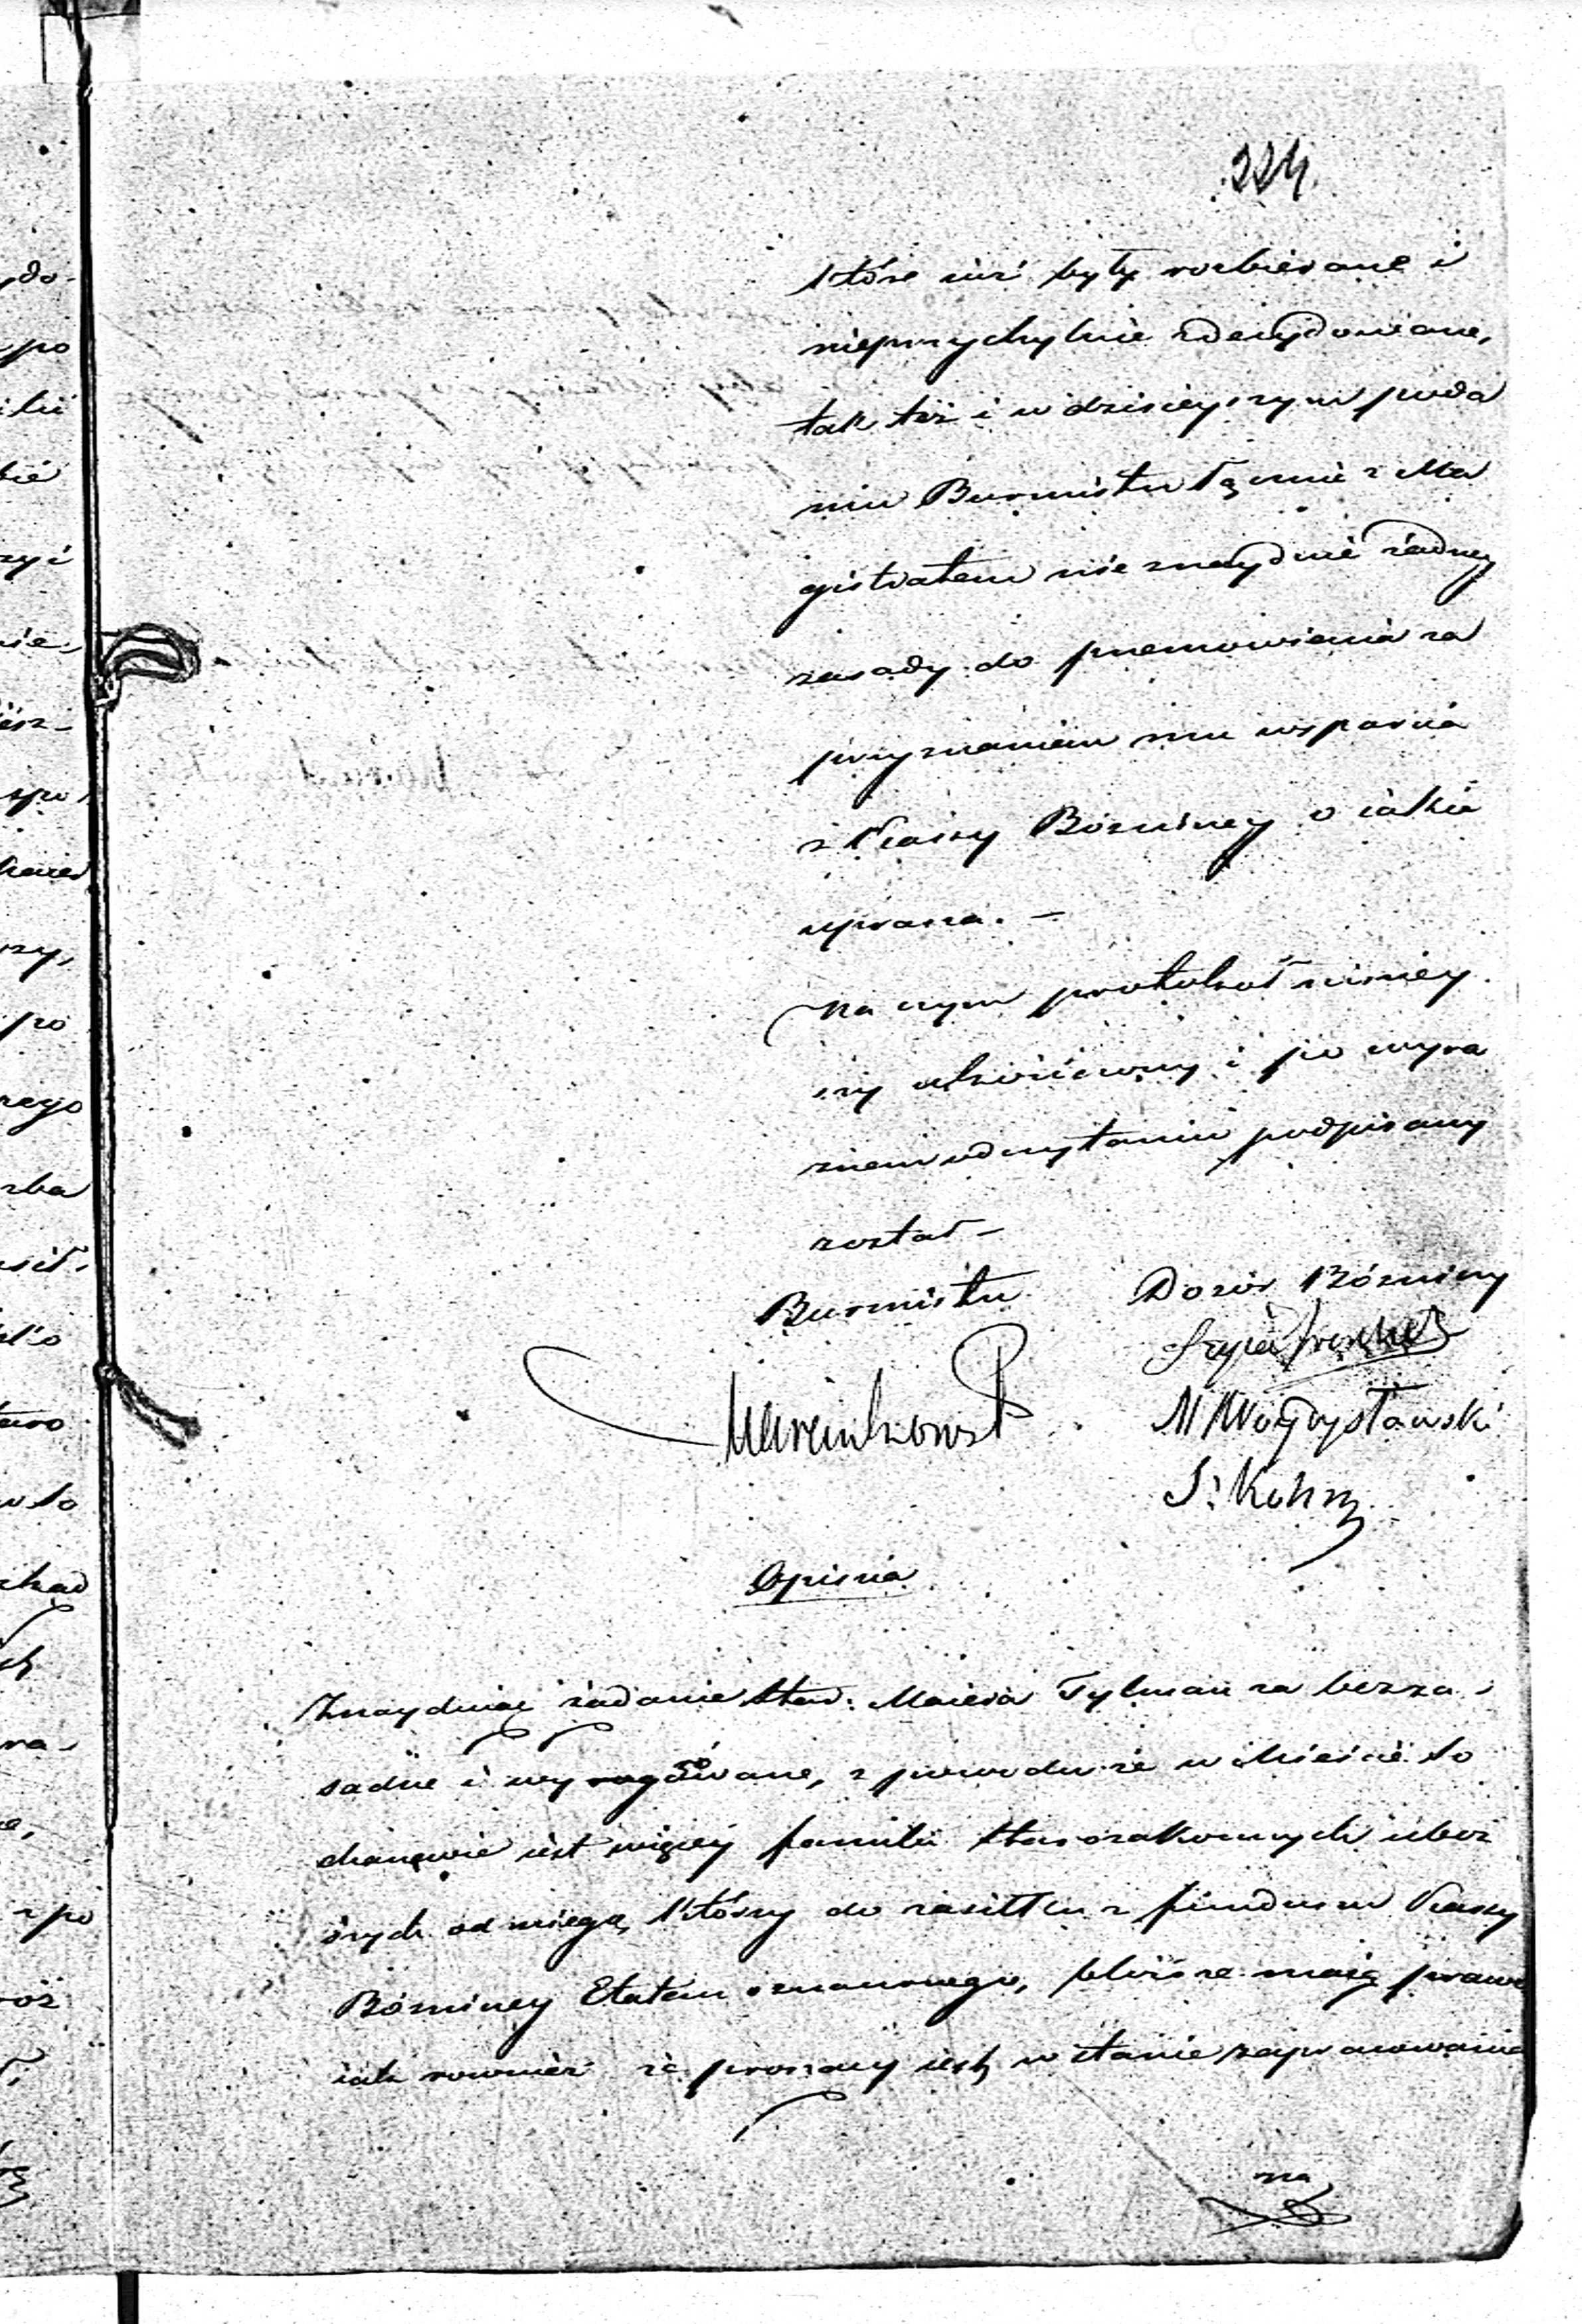 224.
które iuż były rozbierane i
nieprzychylnie zdecydowane,
tak też i w dzisieyszym poda
niu Burmistrz łącznie z Ma
gistratem nie znayduie żadney
zasady do przemowienia za
przyznaniem mu wsparcia
z Kassy Bóżniczey o iakie
uprasza. —
Na czym protokół ninieyszy
ukończony i po wyra
znem odczytaniu podpisany
został —
Burmistrz Dozór Bóżniczy
Marcinkowski
M Woydysławski
S. Kohn
Opinia
Znayduiąc żądanie Star. Maiera Tylman za bezza
sadne i wy , z powodu że w Mieście to
iest więcey familii Starozakonnych uboż
szych od niego, którzy do zasiłku z funduszu Kassy
Bóżniczey Etatem oznaczonego, bliższe maią prawo
iak rownież że proszący iest w stanie zapracowania
na
ydo-
po
bie
nie,
spo
szy,
po
rego
zba
to
ch
ra-
z po